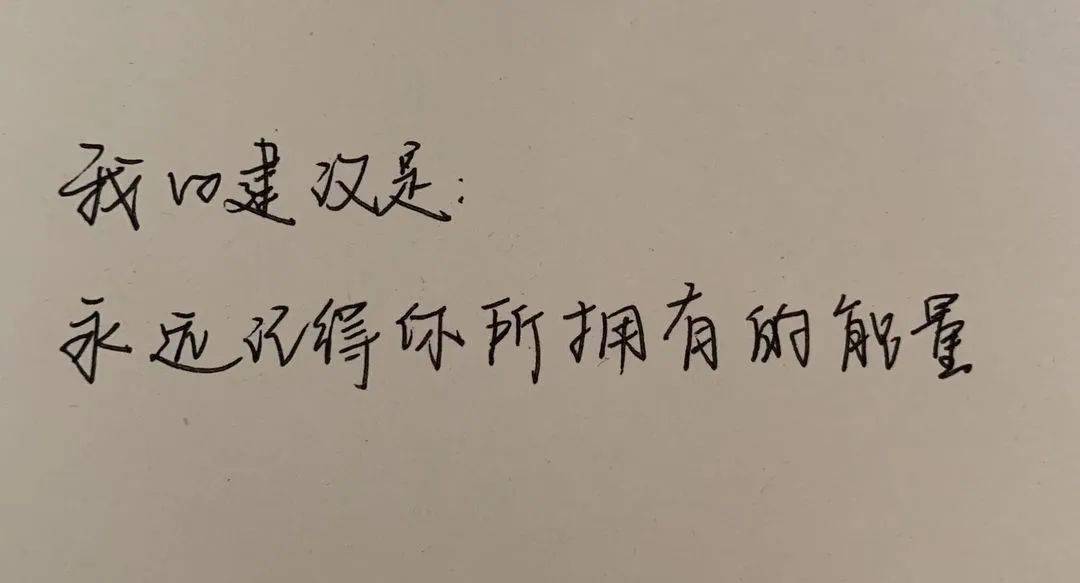 我的建议是:
永远记得你所拥有的能量